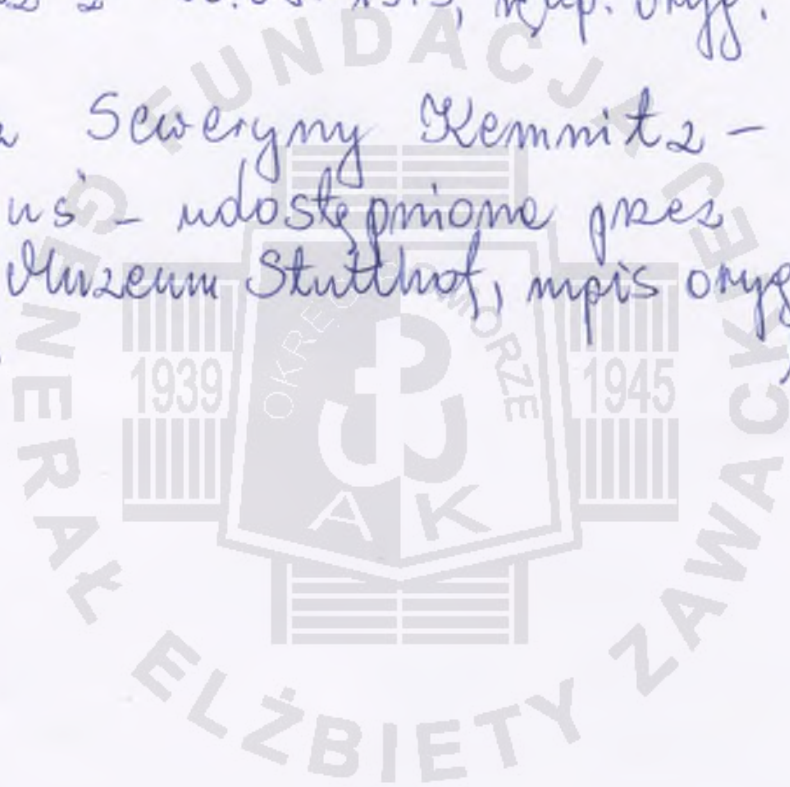 Seweryny Kemnitz -
uś - udostępnione przez
Muzeum Stutthof, mpis oryg
FUNDACJA GENERAŁ ELŻBIETY ZAWACKIEJ
OKRĘG POMORZE
1939
1945
A K